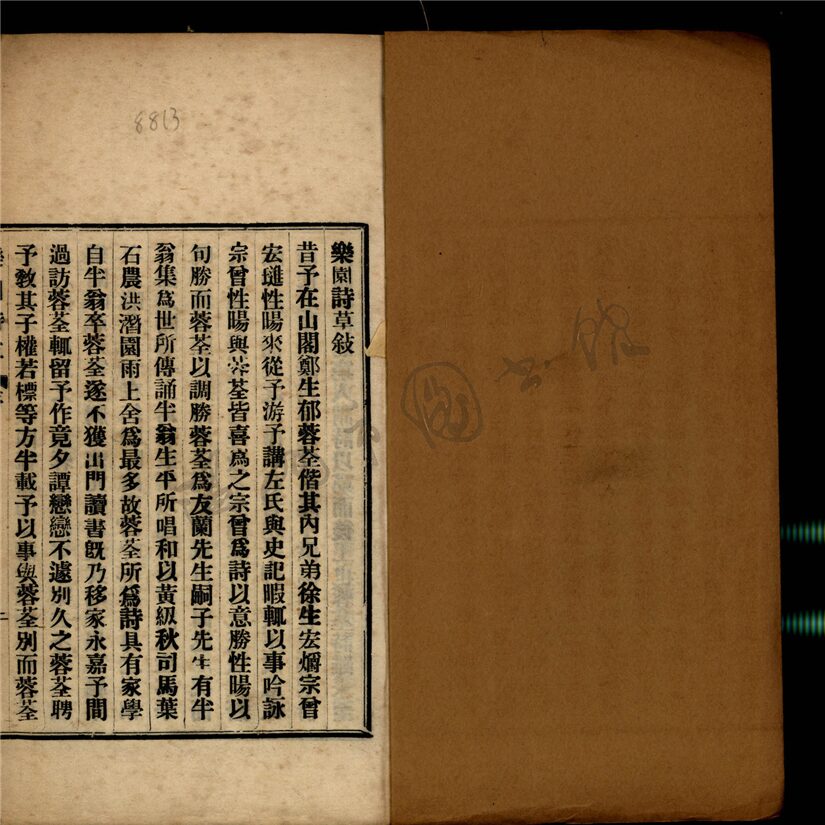 8813
樂園詩草敍
昔予在山閣鄭生郁蓉荃偕其內兄弟徐生宏爝宗曾
宏璡性暘來從予游予講左氏與史記暇輒以事吟詠
宗曾性暘與蓉荃皆喜爲之宗曾爲詩以意勝性暘以
句勝而蓉荃以調勝蓉荃爲友蘭先生嗣子先生有半
翁集爲世所傳誦半翁生平所唱和以黃級秋司馬葉
石農洪㵛園雨上舍爲最多故蓉荃所爲詩具有家學
自半翁卒蓉荃遂不獲出門讀書旣乃移家永嘉予間
過訪蓉荃輒留予作竟夕譚戀戀不遽別久之蓉荃聘
予敎其子權若標等方半載予以事與蓉荃別而蓉荃